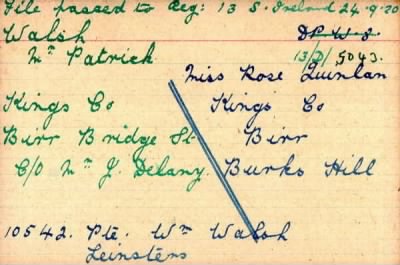 File passed to Reg: 13 S. Ireland 24.9.20
Walsh D.P.W.S.
Mr Patrick. 13/D/5043.
Miss Rose Quinlan
Kings Co Kings Co
Birr Bridge St Birr
C/O Mr J. Delany. Burks Hill
10542. Pte. Wm Walsh
Leinsters